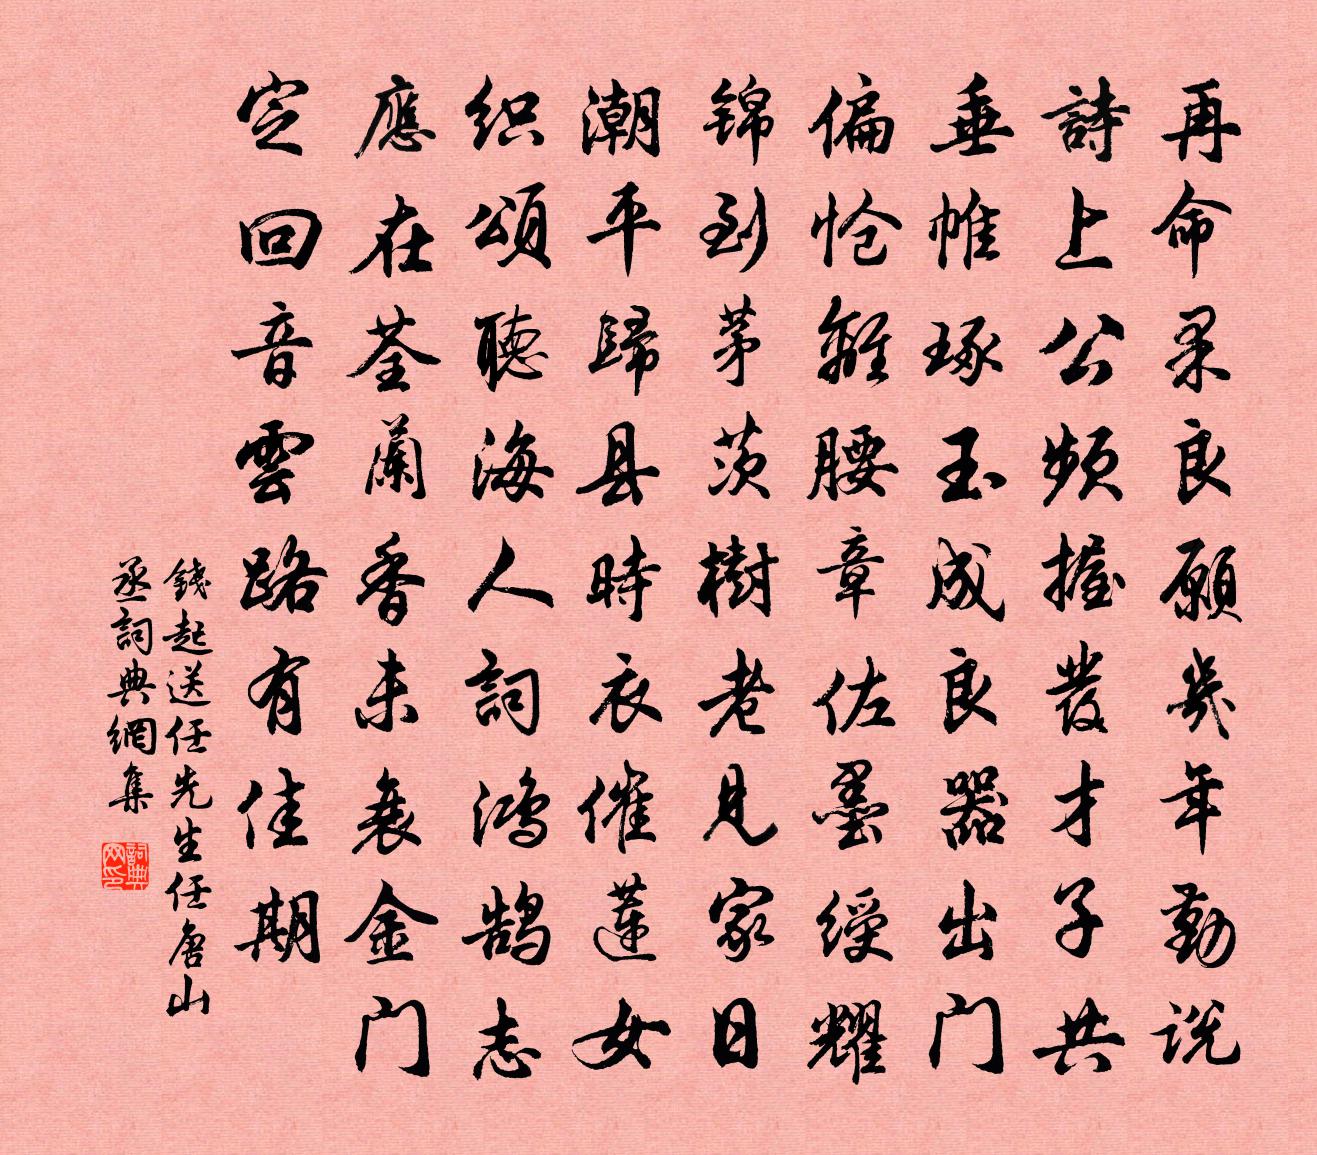 再命果良願幾年勤说
詩上公頻握發才子共
垂帷琢玉成良器出门
偏怆離腰章佐墨绶耀
锦到茅茨樹老見家日
潮平歸县時衣催蓮女
织頌聽海人詞鸿鹄志
應在荃蘭香未衰金门
定回音雲路有佳期
錢起送任先生任唐山
丞詞典網集
詞典网印